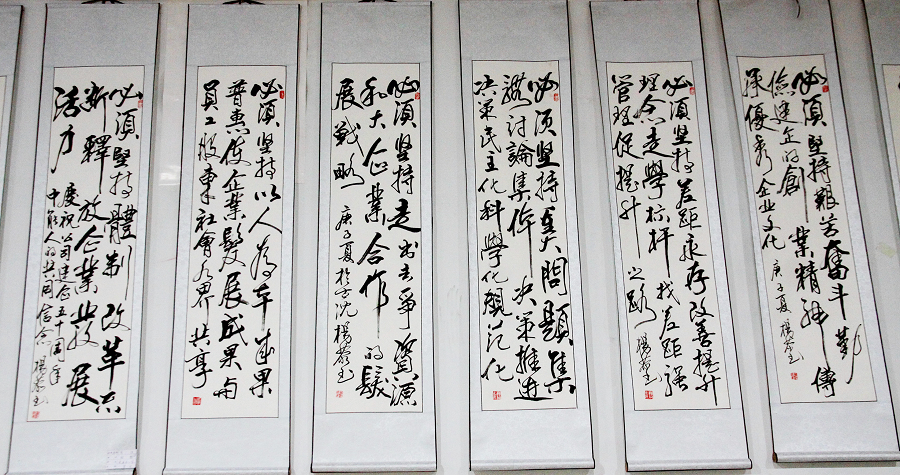 必须坚持艱苦奮斗勤
儉建企的創業精神傳
承優秀企业文化 庚子夏 楊
必须坚持差距永存改善提升
理念走學标杆找差距强
管理促提升之路 楊
必须坚持重大问題集
體讨論集体决策推进
决策民主化科學化规范化
必须坚持走出去争資源
和大企業合作的發
展戰略 庚子夏於 沈 楊
必须坚持以人為本成果
普惠使企業發展成果与
員工股東社會各界共享
必須堅持體制改革不
断釋放企業 展
活力
慶祝公司建企五十周年
中能人的共同信念 楊